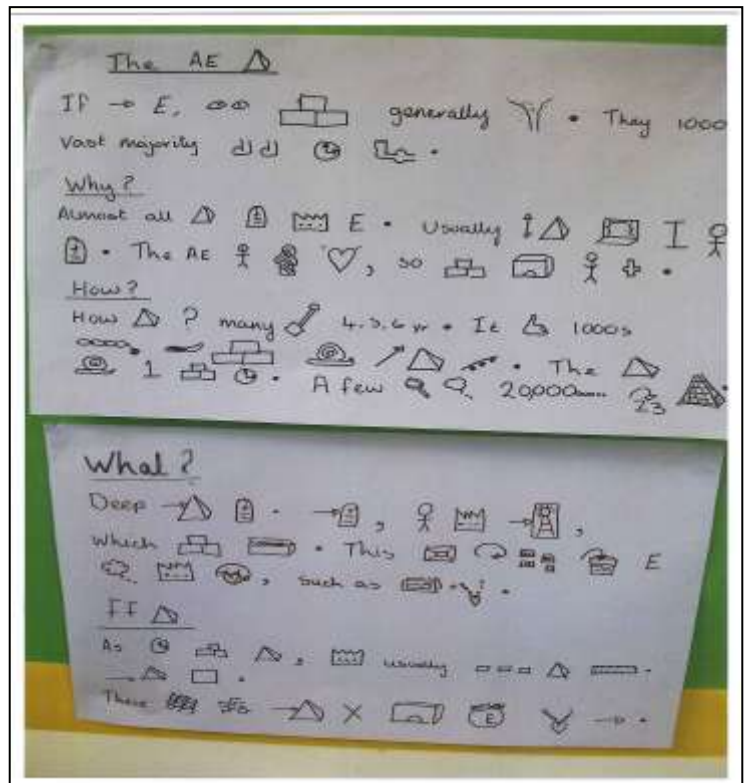 The AE
If E, generally . They 1000
Vast majority .
Why?
Almost all E . Usually
. The AE , so .
How?
How ? many 4.5.6 yr . It 1000s
. The
1 . A few 20,000
What?
Deep . , ,
Which . This E
, such as .
FF
As , usually .
.
There E .